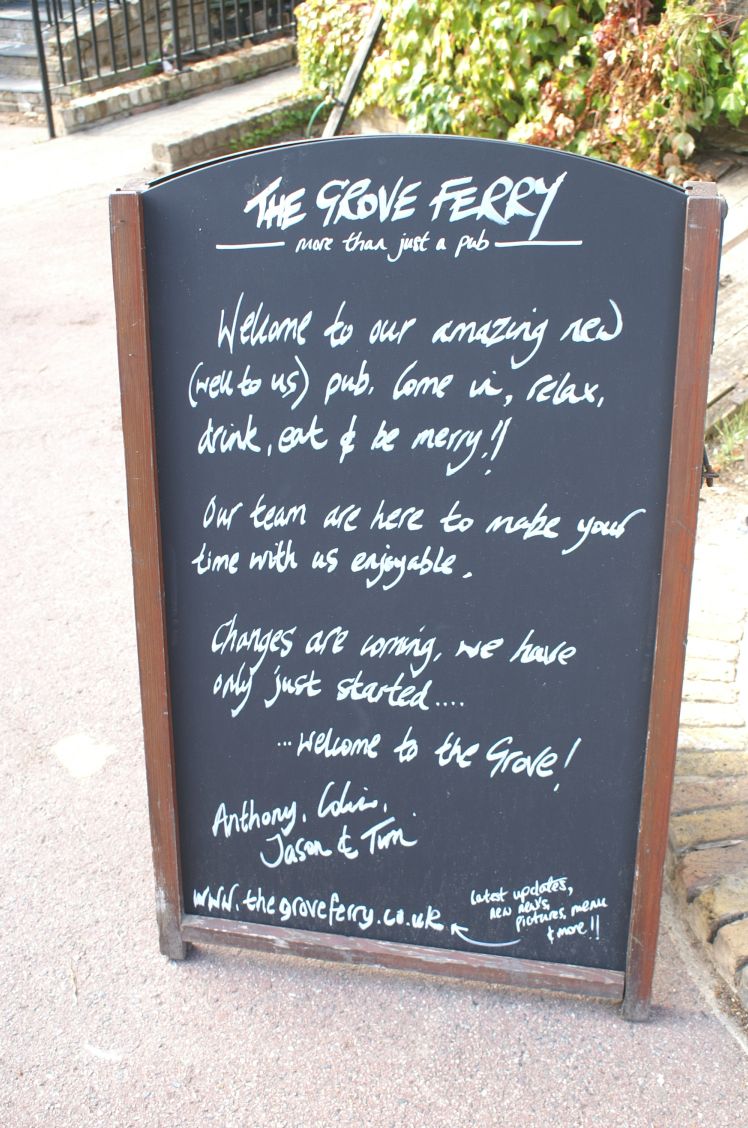 THE GROVE FERRY
more than just a pub
Welcome to our amazing new
(well to us) pub. Come in, relax,
drink, eat & be merry!!
Our team are here to make your
time with us enjoyable.
Changes are coming, we have
only just started....
...welcome to the Grove!
Anthony, Colin,
Jason & Tim.
www.thegroveferry.co.uk
latest updates,
new news,
pictures, menu
& more!!